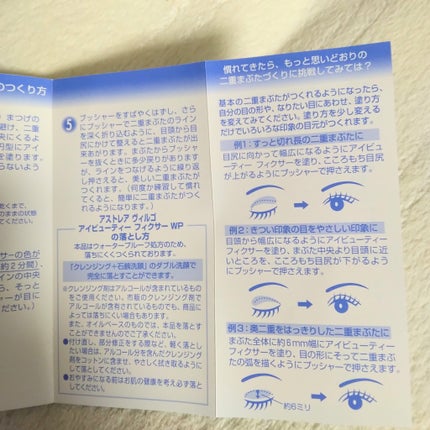 のつくり方
まつげの
避け、二重
くにくるよ
円型にアイ
ーを塗ります。
らないよう
乾くまで、
ままの状態
ください。
サーの色が
約2分間)、
インの中央
、そっと
シャーが目に
さい。)
5
プッシャーをすばやくはずし、さら
にプッシャーで二重まぶたのライン
を深く折り込むように、目頭から目
尻にかけて整えると二重まぶたが出
来あがります。まぶたからプッシャ
ーを抜くときに多少戻りがあります
が、ラインをつなげるように繰り返
し押さえると、美しい二重まぶたが
つくれます。(何度か練習して慣れ
てくると、簡単に二重まぶたになり
ます。)
アストレア ヴィルゴ
アイビューティー フィクサー WP
の落とし方
本品はウォータープルーフ処方のため、
落ちにくくなっております。
「クレンジング+石鹸洗顔」のダブル洗顔で
完全に落とすことができます。
※クレンジング剤はアルコールが含まれているもの
をご使用ください。市販のクレンジング剤で
アルコールが含有されているものでも、商品に
よっては落ちにくい場合もあります。
また、オイルベースのものでは、本品を落とすこ
とができませんのでご了承ください。
●付け直し、部分修正をする際など、軽く落とし
たい場合は、アルコール分を含んだクレンジング剤
をコットンに含ませ、やさしく拭き取るように
して落としてください。
●おやすみになる前はお肌の健康を考え必ず落と
してください。
慣れてきたら、もっと思いどおりの
二重まぶたづくりに挑戦してみては?
基本の二重まぶたがつくれるようになったら、
自分の目の形や、なりたい目にあわせ、塗り方
を変えてみてください。塗り方を少し変える
だけでいろいろな印象の目元がつくれます。
例1:すっと切れ長の二重まぶたに
目尻に向かって幅広になるようにアイビュー
ティー フィクサーを塗り、こころもち目尻
が上がるようにプッシャーで押さえます。
例2:きつい印象の目をやさしい印象に
目頭から幅広になるようにアイビューティー
フィクサーを塗り、まぶた中央より目頭に近
いところを、こころもち目尻が下がるように
プッシャーで押さえます。
例3:奥二重をはっきりした二重まぶたに
まぶた全体に約6mm幅にアイビューティー
フィクサーを塗り、目の形にそって二重まぶ
たの弧を描くようにプッシャーで押さえます。
約6ミリ